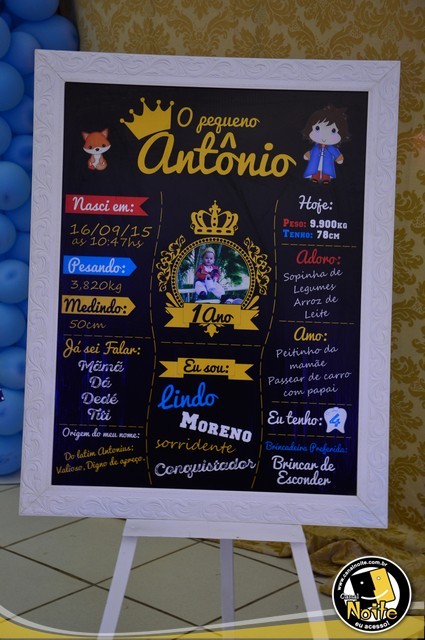 O pequeno
Antônio
Nasci em:
16/09/15
as 10:47hs
Pesando:
3,820kg
Medindo:
50cm
Já sei Falar:
Mamã
Dá
Dedé
Titi
Origem do meu nome:
Do latim Antonius:
Valioso, Digno de apreço.
1 Ano
Eu sou:
lindo
MORENO
sorridente
Conquistador
Hoje:
PESO: 9,900KG
TENHO: 78CM
Adoro:
Sopinha de
Legumes
Arroz de
Leite
Amo:
Peitinho da
mamãe
Passear de carro
com papai
Eu tenho: 4
Brincadeira Preferida:
Brincar de
Esconder
www.canalnoite.com.br
Canal
Noite
eu acesso!